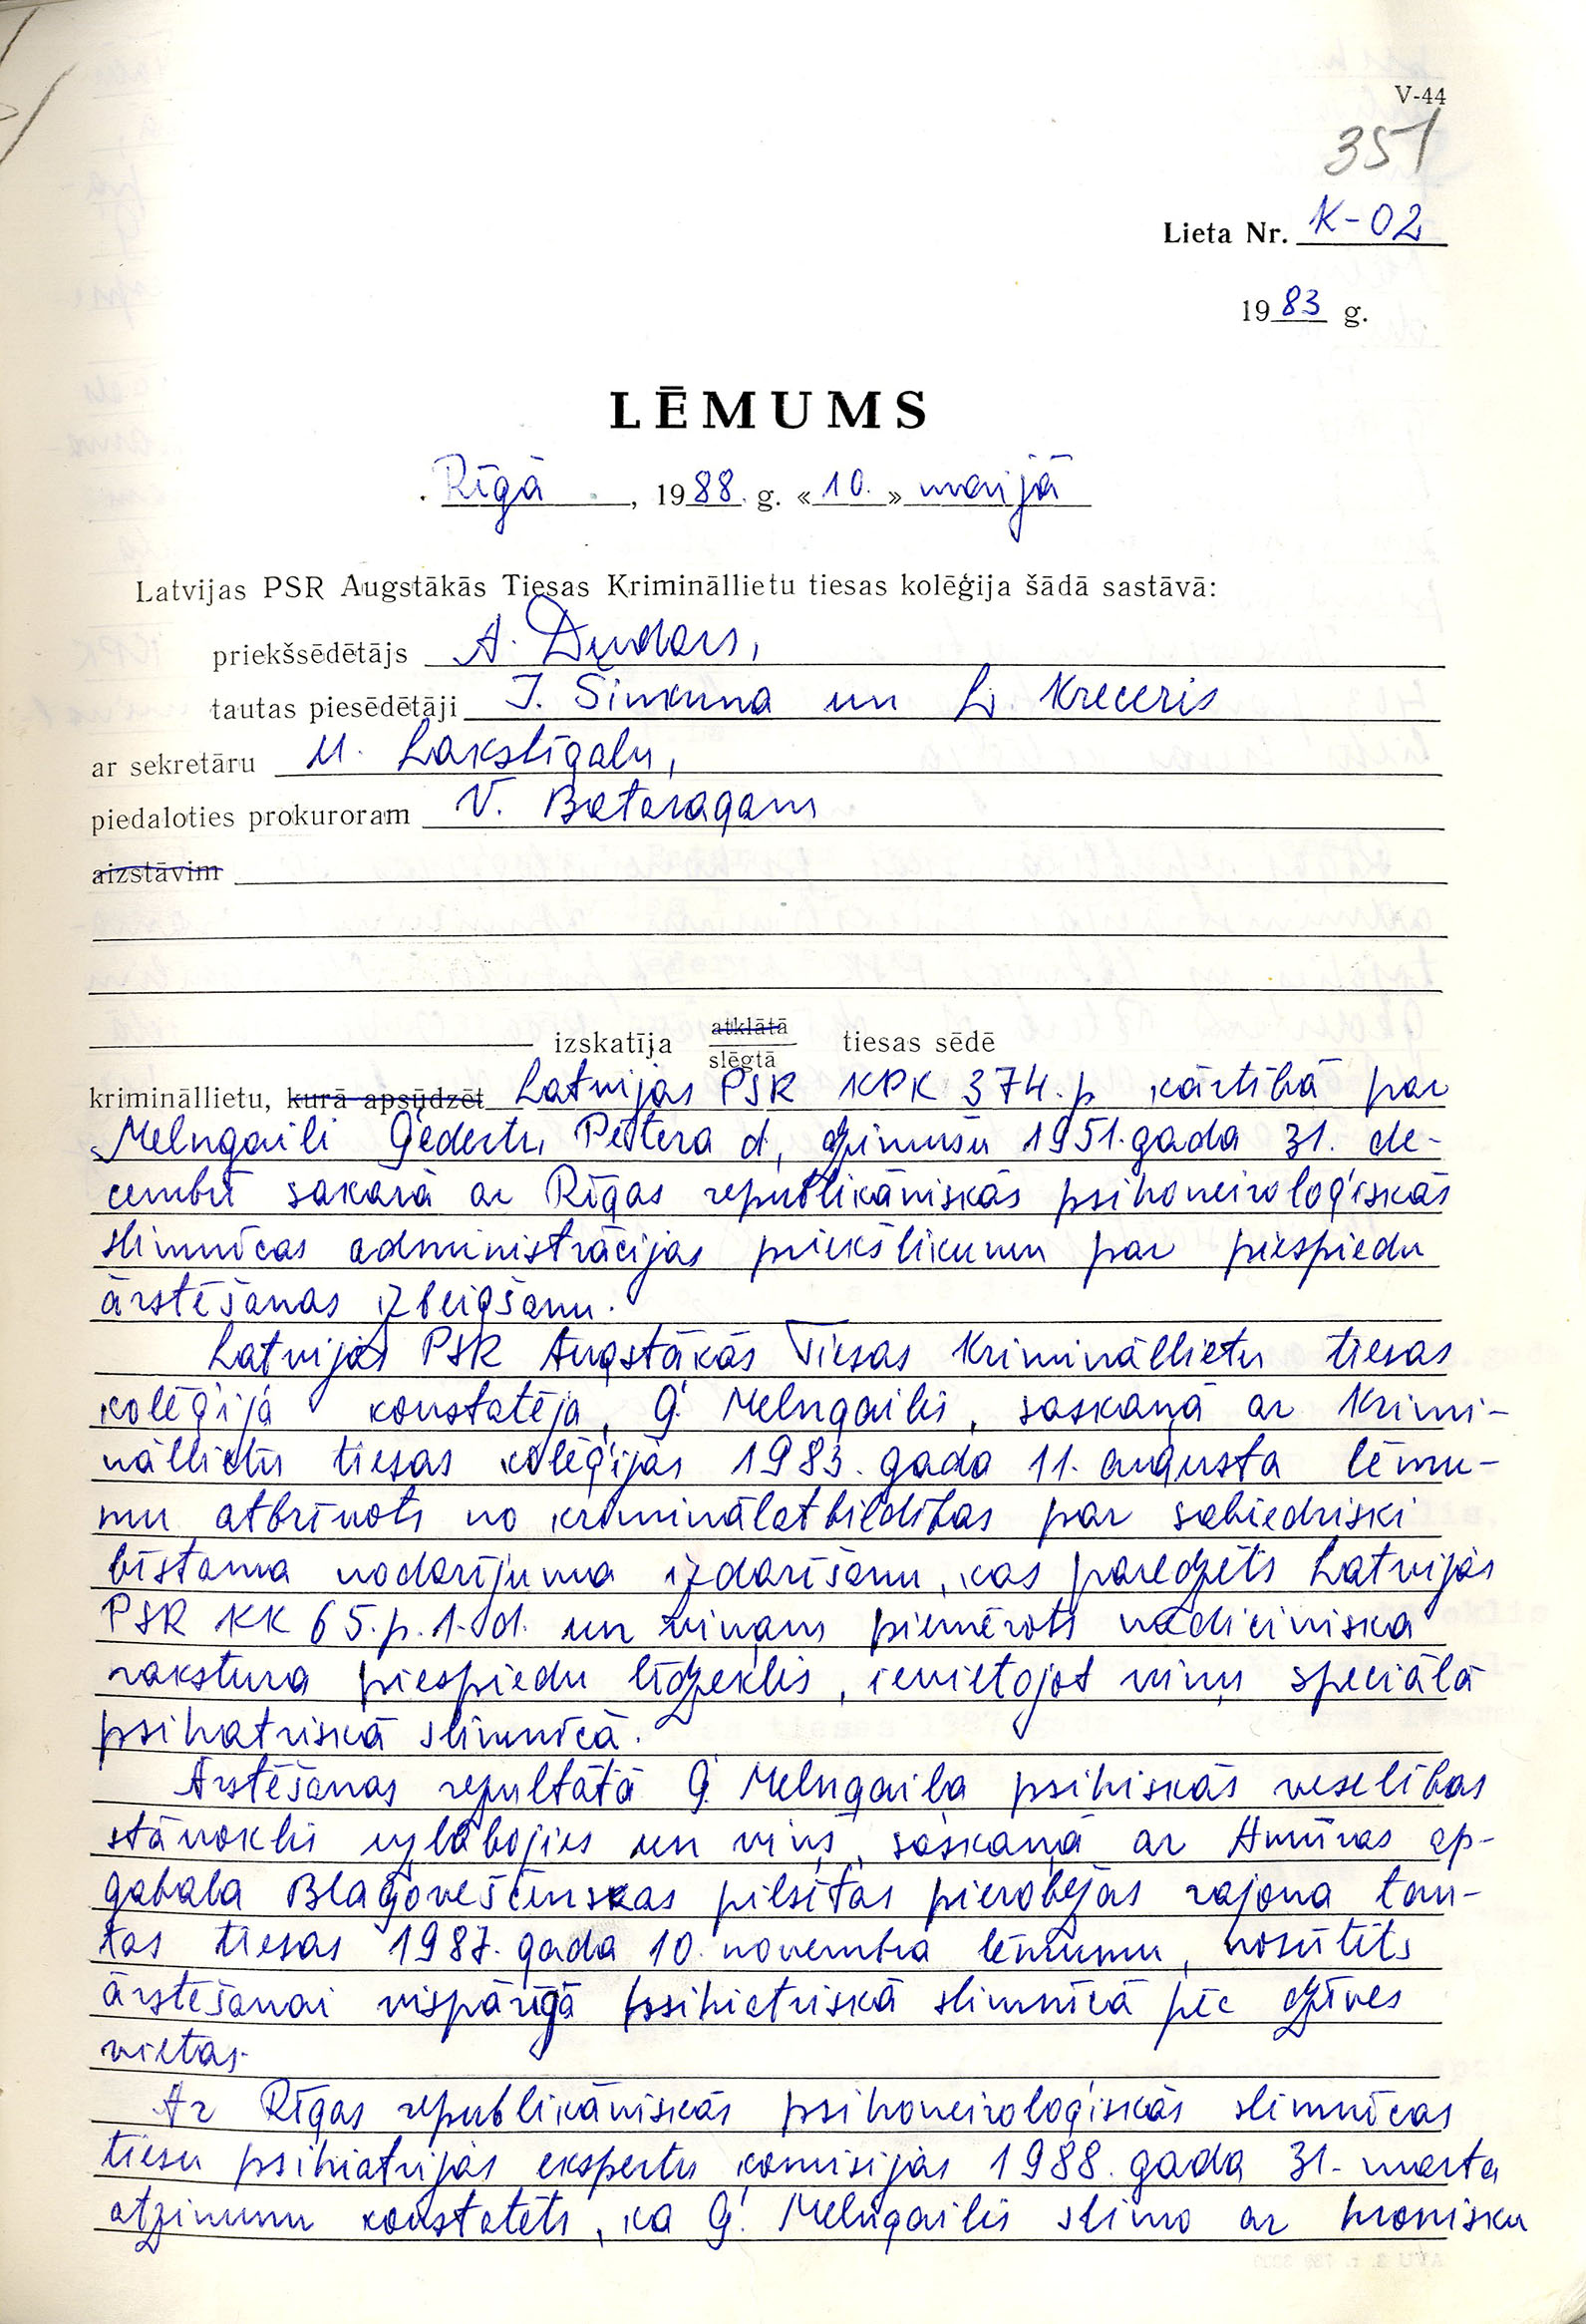 V-44
351
Lieta Nr. K-02
1983 g.
LĒMUMS
Rīgā, 1988. g. «10.» maijā
Latvijas PSR Augstākās Tiesas Krimināllietu tiesas kolēģija šādā sastāvā:
priekšsēdētājs A. Dundars,
tautas piesēdētāji I. Simkuna un L. Kreceris
ar sekretāru M. Lakstīgalu,
piedaloties prokuroram V. Bataragam
aizstāvim
izskatīja atklātā
slēgtā tiesas sēdē
krimināllietu, kurā apsūdzēt Latvijas PSR KPK 374.p kārtībā par
Melngaili Ģedertu, Pētera d, dzimušu 1951.gada 31. de-
cembrī sakarā ar Rīgas republikāniskās psihoneiroloģiskās
slimnīcas administrācijas priekšlikumu par piespiedu
ārstēšanas izbeigšanu.
Latvijas PSR Augstākās Tiesas Krimināllietu tiesas
kolēģija konstatēja, Ģ. Melngailis, saskaņā ar Krimi-
nāllietu tiesas kolēģijas 1983. gada 11. augusta lēmu-
mu atbrīvots no kriminālatbildības par sabiedriski
bīstama nodarījuma izdarīšanu, kas paredzēts Latvijas
PSR KK 65.p.1.d. un viņam piemērots medicīniska
rakstura piespiedu līdzeklis, ievietojot viņu speciālā
psihatriskā slimnīcā.
Ārstēšanas rezultātā Ģ. Melngaiļa psihiskās veselības
stāvoklis uzlabojies un viņš, saskaņā ar Amūras ap-
gabala Blagoveščenskas pilsētas pierobežas rajona tau-
tas tiesas 1987. gada 10. novembra lēmumu, nosūtīts
ārstēšanai vispārīgā psihiatriskā slimnīcā pēc dzīves
vietas.
Ar Rīgas republikāniskās psihoneiroloģiskās slimnīcas
tiesu psihiatrijas ekspertu komisijas 1988. gada 31. marta
atzinumu konstatēts, ka Ģ. Melngailis slimo ar hronisku